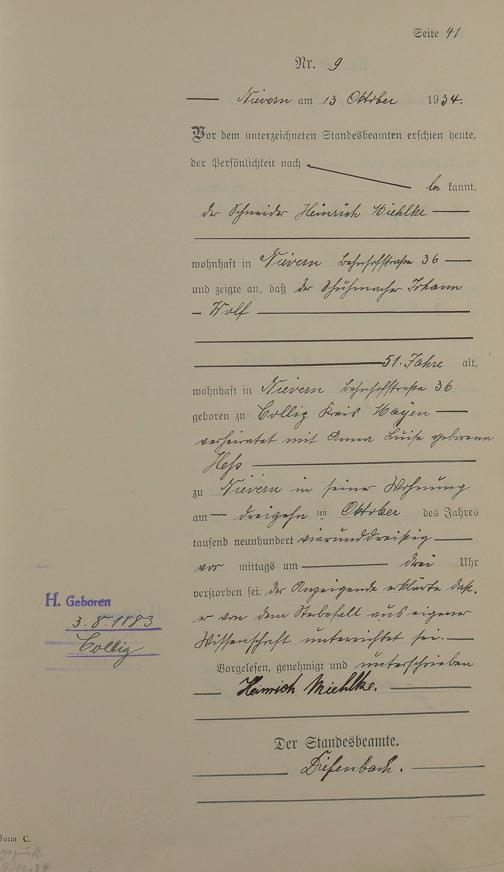 Seite 41
Nr. 9
Nievern am 13 Oktober 1934.
Vor dem unterzeichneten Standesbeamten erschien heute,
der Persönlichkeit nach
be kannt,
der Schneider Heinrich Miehlke
wohnhaft in Nievern Bahnhofstraße 36
und zeigte an, daß der Schuhmacher Johann
Wolf
51. Jahre alt,
wohnhaft in Nievern Bahnhofstraße 36
geboren zu Collig Kreis Mayen
verheiratet mit Anna Luise geborene
Heß
zu Nievern in seiner Wohnung
am dreizehn ten Oktober des Jahres
tausend neunhundert vierunddreißig
vor mittags um drei Uhr
verstorben sei. der Anzeigende erklärte daß.
er von dem Sterbefall aus eigener
Wissenschaft unterrichtet sei.
H. Geboren
3.8.1883
Collig
Vorgelesen, genehmigt und unterschrieben
Heinrich Miehlke.
Der Standesbeamte.
Diefenbach.
Form C.